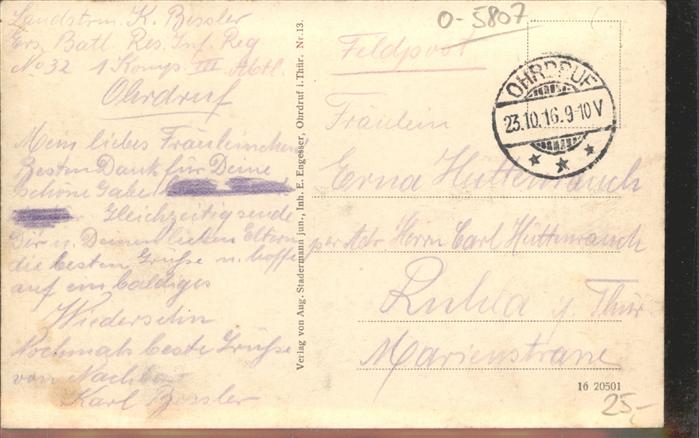 Landstrm. K. Bessler
Ers. Batl. Res. Inf. Reg
No 32 1 Komp. III Abtl.
Ohrdruf
Mein liebes Fräuleinchen
Besten Dank für Deine
schöne Gabe!
Gleichzeitig sende
Dir u. Deinen lieben Eltern
die besten Grüße u. hoffe
auf ein baldiges
Wiedersehn
Nochmals beste Grüße
von Nachbar
Karl Bessler
Verlag von Aug. Stadermann jun., Inh. E. Engesser, Ohrdruf i. Thür. Nr. 13.
O-5807
Feldpost
OHRDRUF
23.10.16.9-10V
Fräulein
Erna Hüttenrauch
per Adr Herrn Carl Hüttenrauch
Ruhla i/ Thür
Marienstrasse
16 20501
25,-